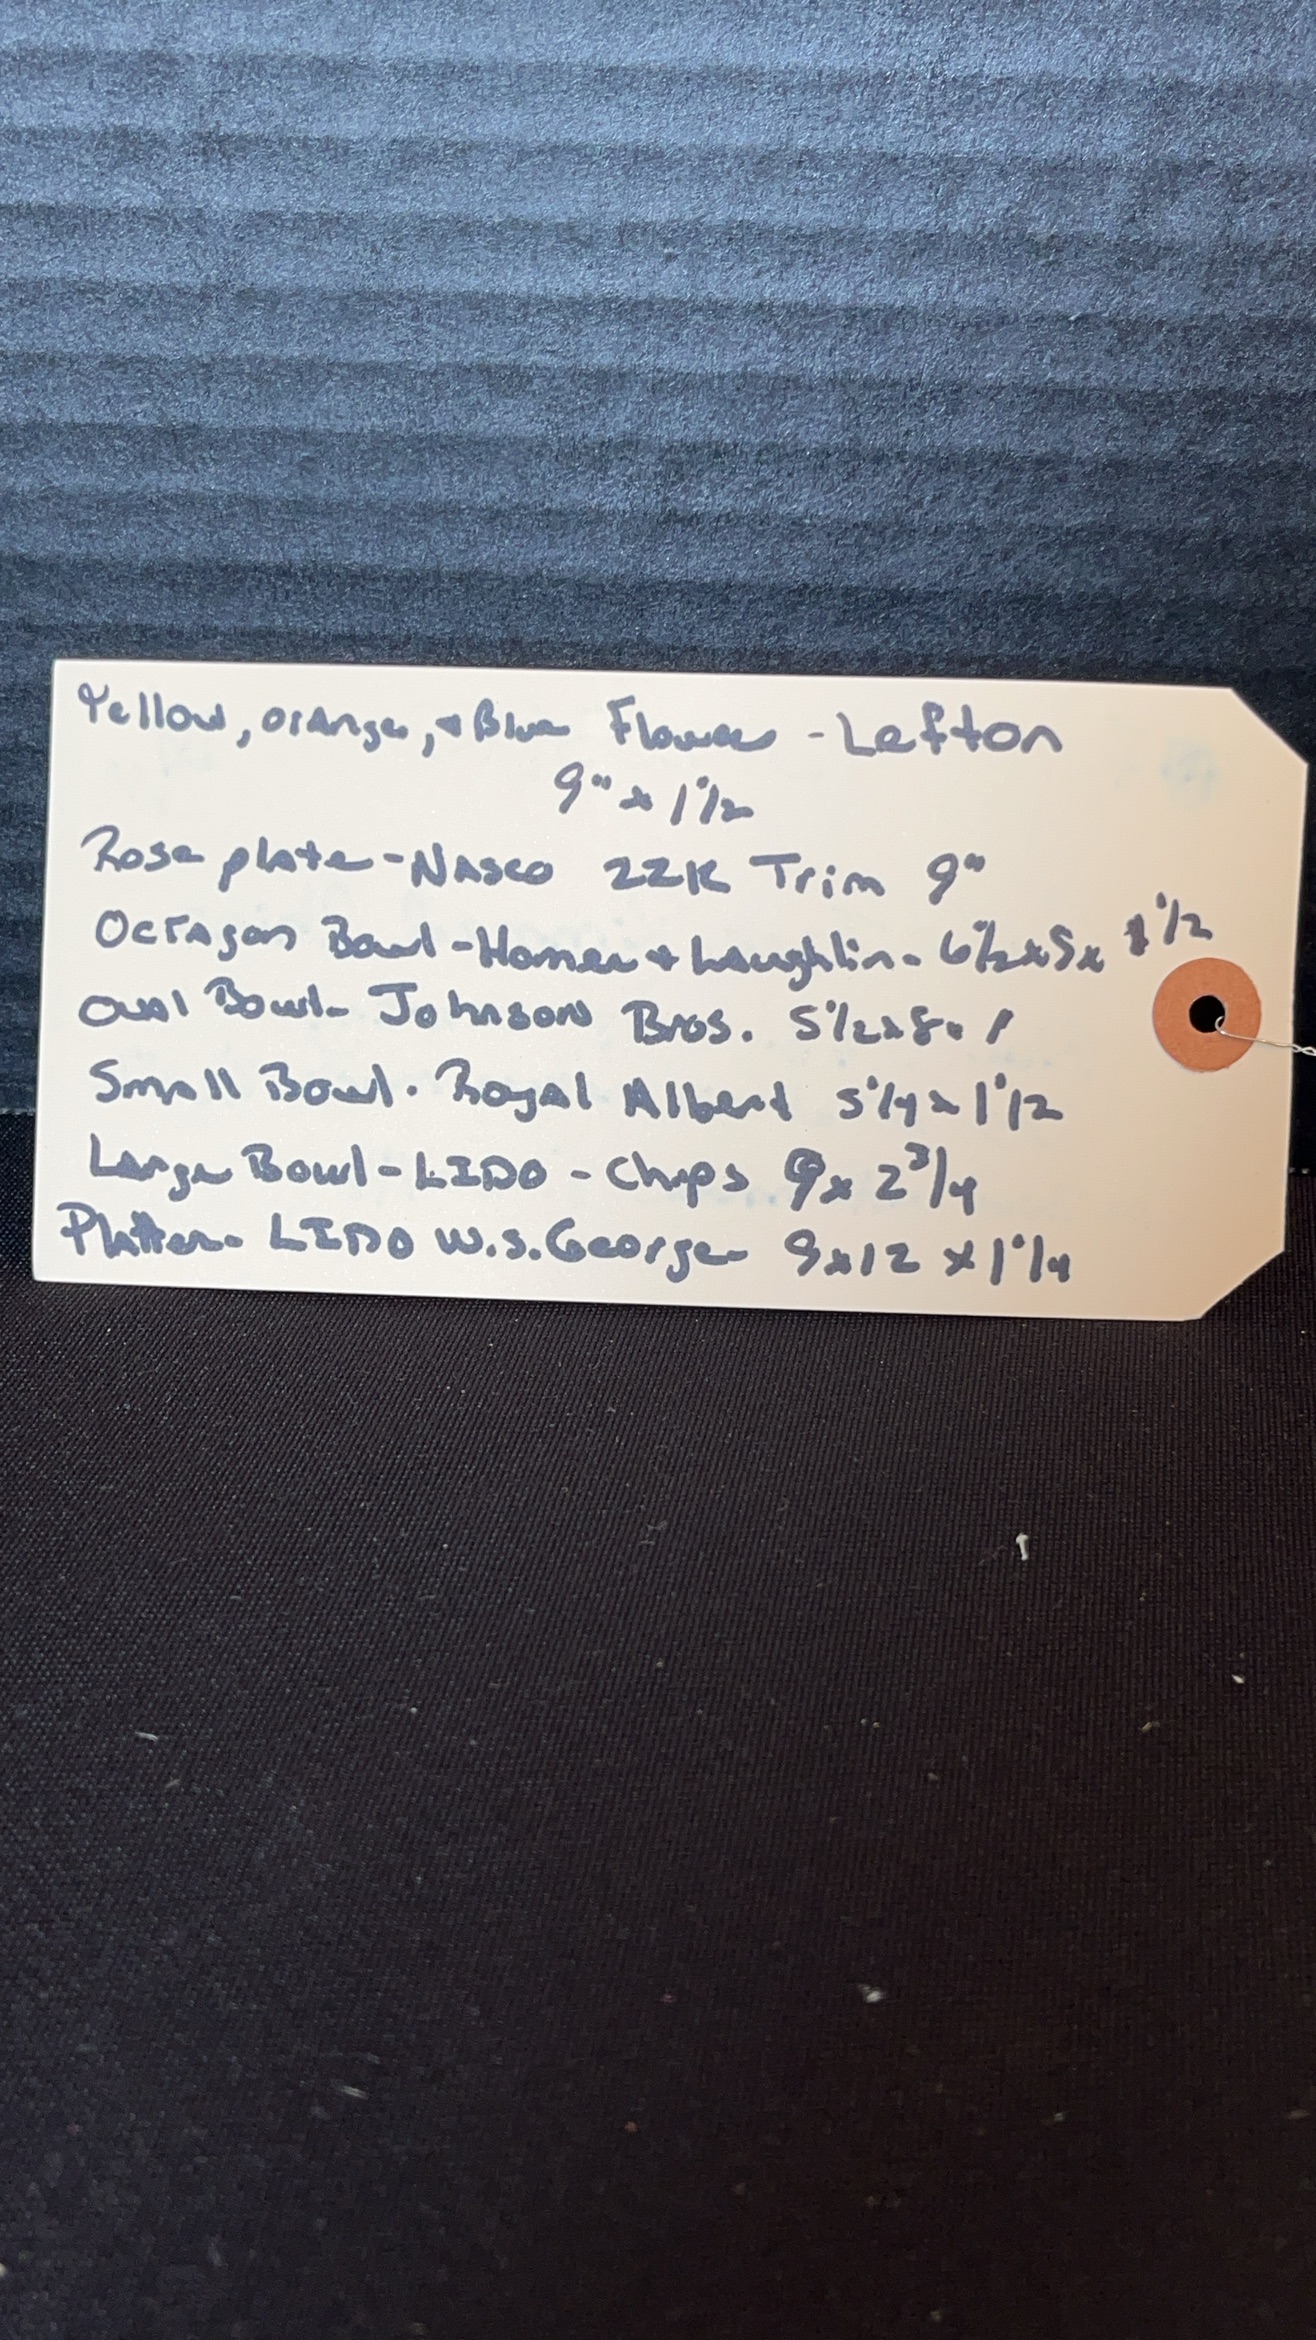 Yellow, orange, + Blue Flowers - Lefton
9" x 1 1/2
Rose plate - NASCO 22K Trim 9"
Octagon Bowl - Homer + Laughlin - 6 1/2 x 5 x 1 1/2
Oval Bowl - Johnson Bros. 5 1/2 x 8 x 1
Small Bowl. Royal Albert 5 1/4 x 1 1/2
Large Bowl - LIDO - Chips 9 x 2 3/4
Platter - LIDO W.S. George 9 x 12 x 1 1/4